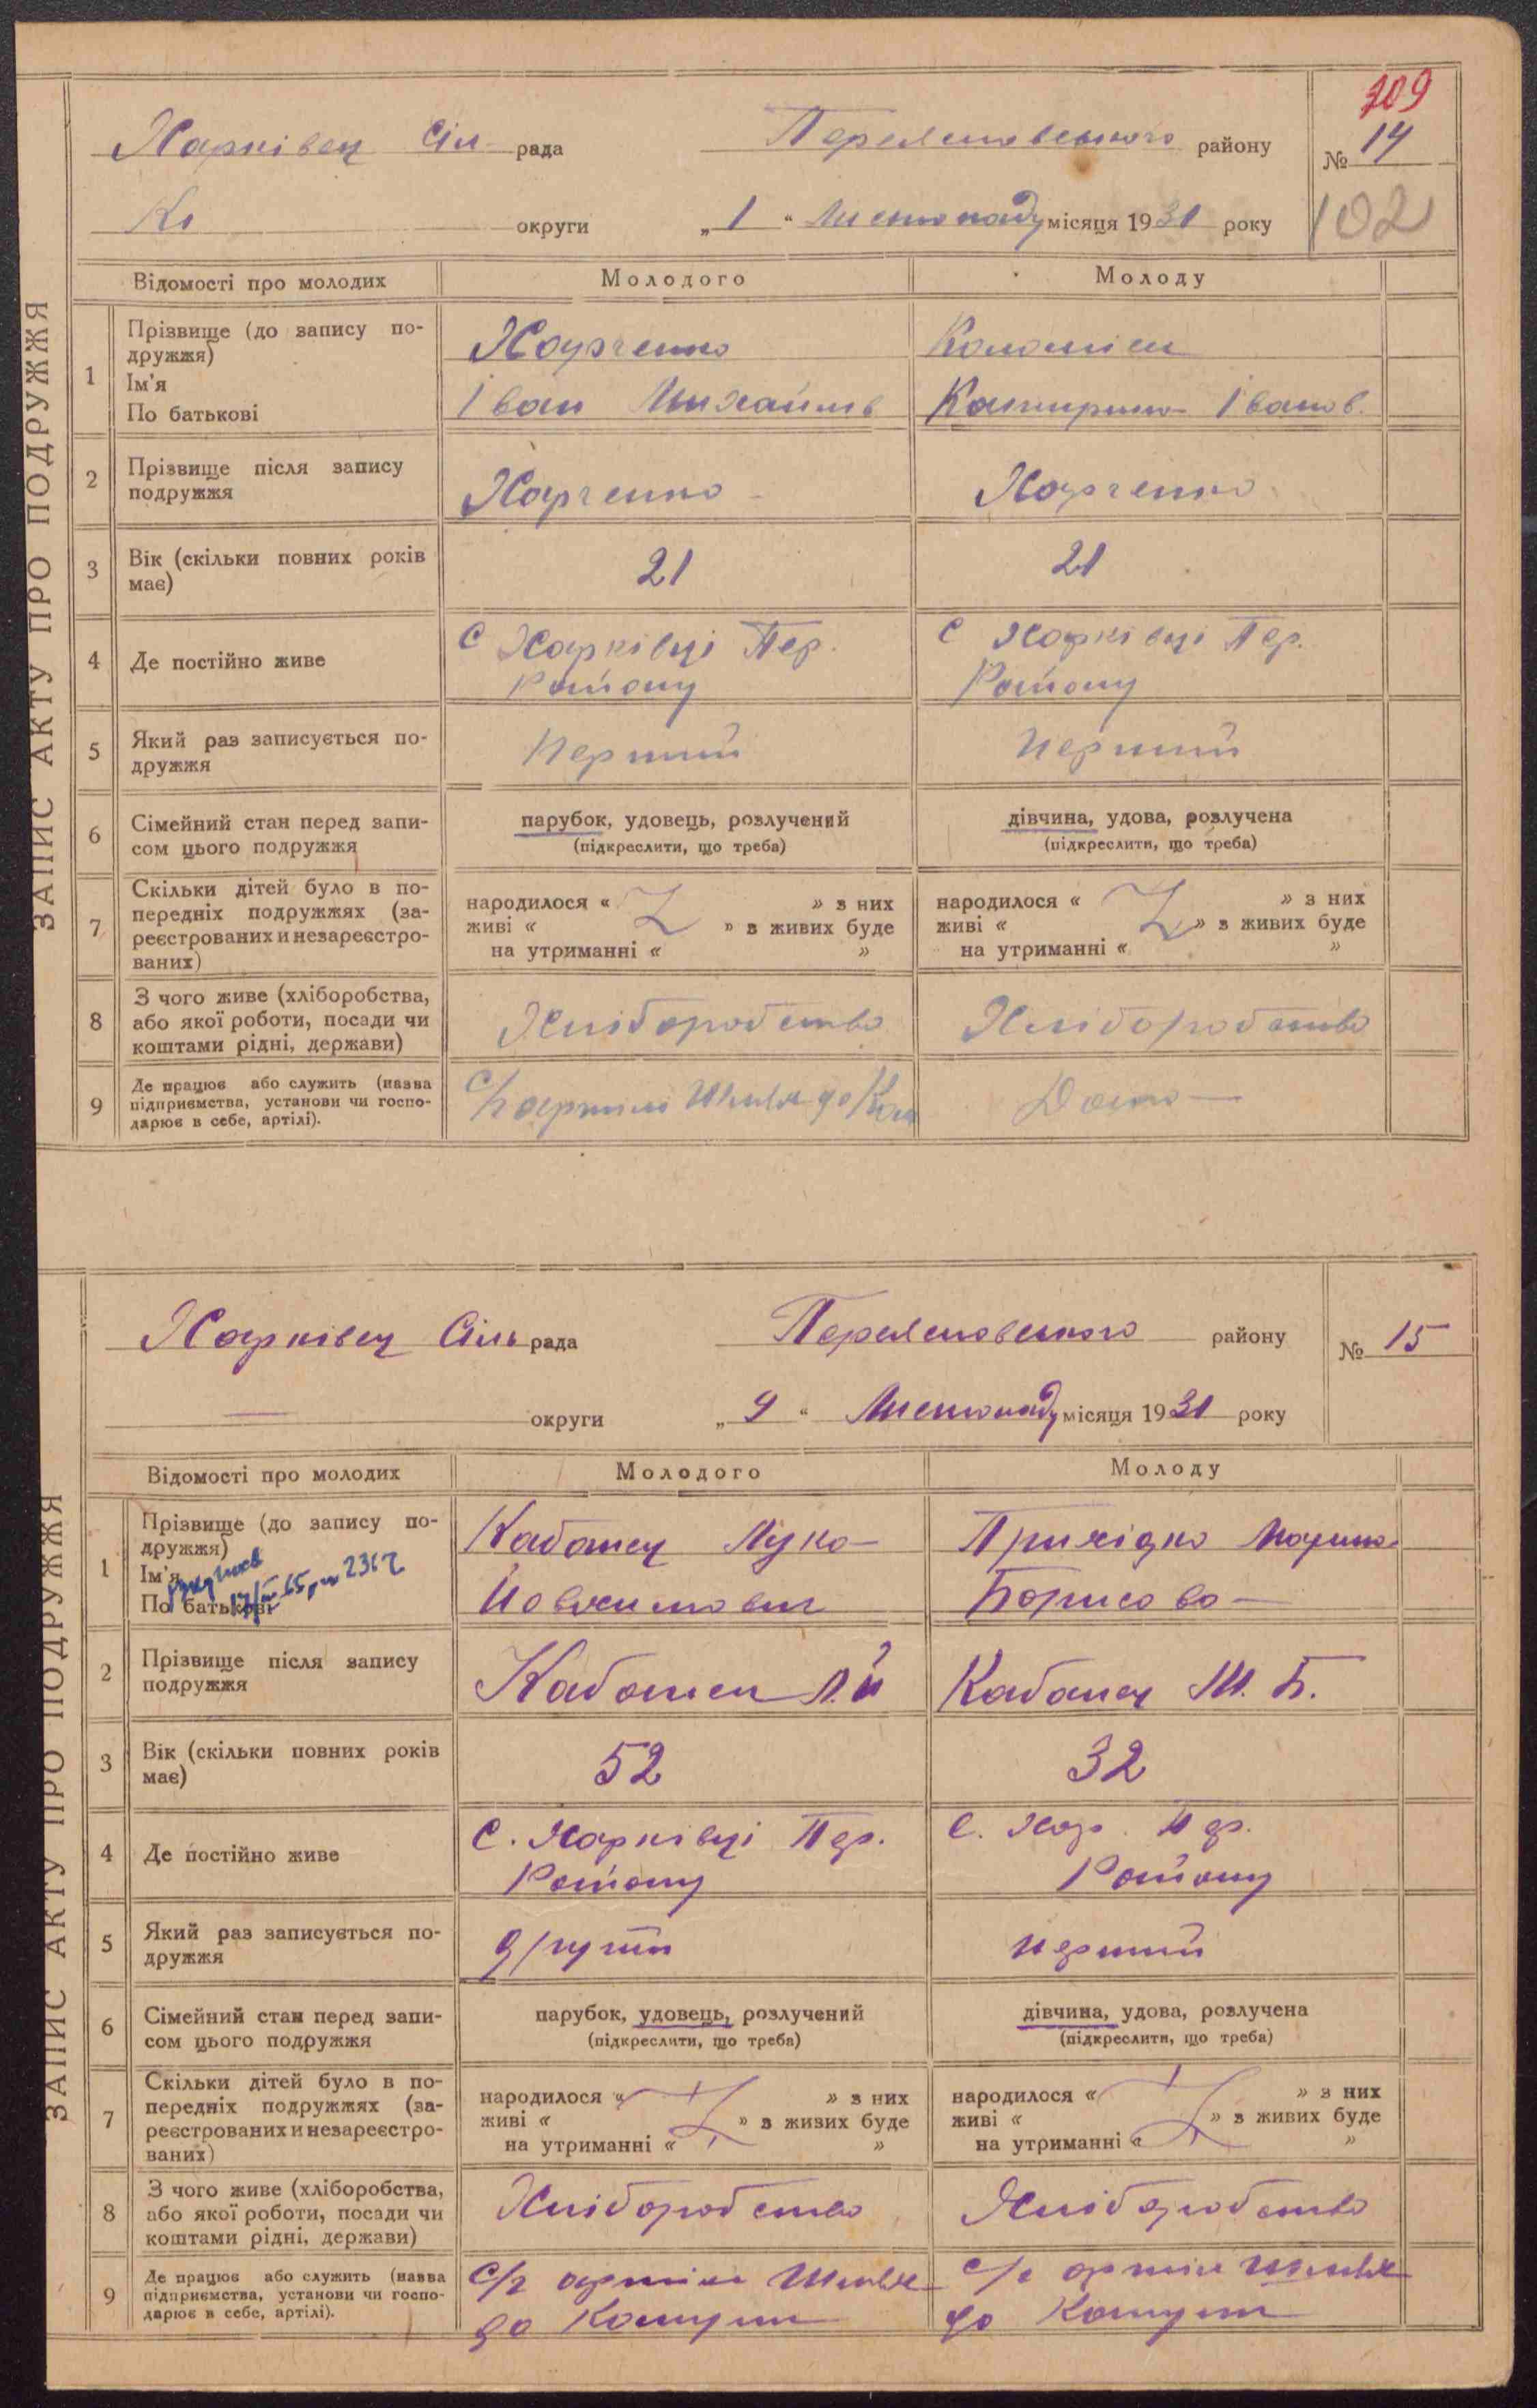 ЗАПИС АКТУ ПРО ПОДРУЖЖЯ
309
Харківец Сіл рада Переяславського району № 14
Ки округи „1“ Листопаду місяця 1931 року 102
Відомості про молодих Молодого Молоду
1 Прізвище (до запису по-
дружжя)
Ім'я
По батькові
Харченко
Іван Михайлів
Коломіец
Катирина Іванов.
2 Прізвище після запису
подружжя
Харченко Харченко
3 Вік (скільки повних років
має)
21 21
4 Де постійно живе
С Харківці Пер.
Району
С Харківці Пер.
Району
5 Який раз записується по-
дружжя
Перший Перший
6 Сімейний стан перед запи-
сом цього подружжя
парубок, удовець, розлучений
(підкреслити, що треба)
дівчина, удова, розлучена
(підкреслити, що треба)
7 Скільки дітей було в по-
передніх подружжях (за-
реєстрованих и незареєстро-
ваних)
народилося « » з них
живі « » з живих буде
на утриманні « »
народилося « » з них
живі « » з живих буде
на утриманні « »
8 З чого живе (хліборобства,
або якої роботи, посади чи
коштами рідні, держави)
Хліборобство Хліборобство
9 Де працює або служить (назва
підприємства, установи чи госпо-
дарює в себе, артілі).
С/г артілі Шлях до Ком
Дома
ЗАПИС АКТУ ПРО ПОДРУЖЖЯ
Харківец Сіль рада Переяславського району № 15
— округи „9“ Листопаду місяця 1931 року
Відомості про молодих Молодого Молоду
1 Прізвище (до запису по-
дружжя)
Ім'я
По батькові
Кабанец Лука
Йовхимович
Прихідко Марина
Борисова
2 Прізвище після запису
подружжя
Кабанец Л.Й Кабанец М. Б.
3 Вік (скільки повних років
має)
52 32
4 Де постійно живе
С. Харківці Пер.
Району
С. Хар. Пер.
Району
5 Який раз записується по-
дружжя
другий перший
6 Сімейний стан перед запи-
сом цього подружжя
парубок, удовець, розлучений
(підкреслити, що треба)
дівчина, удова, розлучена
(підкреслити, що треба)
7 Скільки дітей було в по-
передніх подружжях (за-
реєстрованих и незареєстро-
ваних)
народилося « » з них
живі « » з живих буде
на утриманні « »
народилося « » з них
живі « » з живих буде
на утриманні « »
8 З чого живе (хліборобства,
або якої роботи, посади чи
коштами рідні, держави)
Хліборобство Хліборобство
9 Де працює або служить (назва
підприємства, установи чи госпо-
дарює в себе, артілі).
С/г артілі Шлях
до Комуни
С/г артілі Шлях
до Комуни